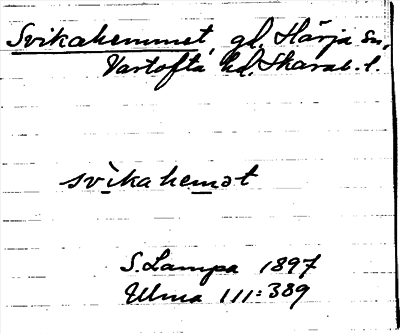 Svikahemmet, gl. Härja sn,
Vartofta hd. Skarab. l.
svikahemət
S. Lampa 1897
Ulma 111:389